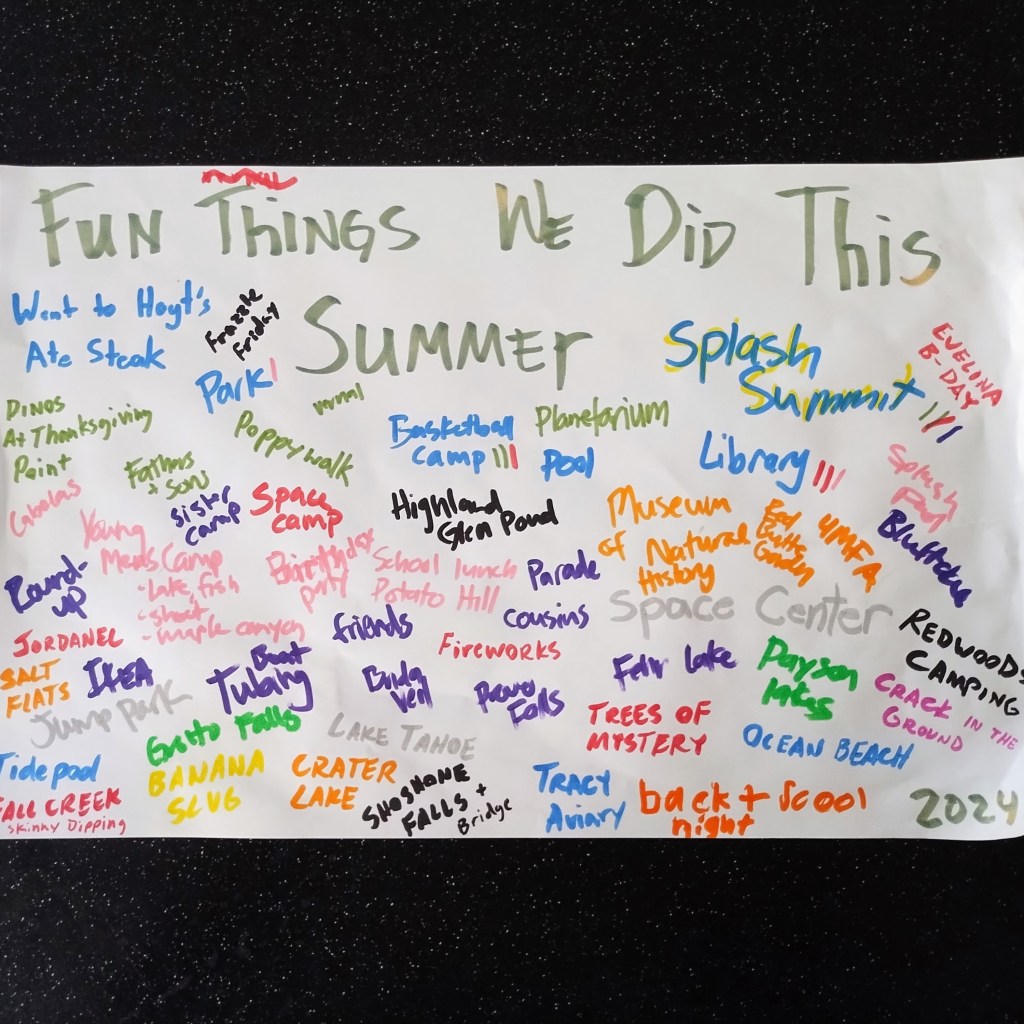 FUN THINGS WE DID THIS
SUMMER
2024
Went to Hoyt's
Ate Steak
Frazzle
Friday
Park
Splash
Summit
EVELINA
B-DAY
DINOS
At Thanksgiving
Point
Fathers
+ Sons
Poppy walk
Basketball
Camp
Planetarium
Pool
Library
Splash
Cabelas
Young
Mens Camp
- lake, fish
- shoot
- maple canyon
Sister
Camp
Space
camp
Highland
Glen Pond
Museum
of Natural
History
UMFA
Round-
up
Birthday
party
School lunch
Potato Hill
Parade
cousins
friends
Fireworks
Space Center
REDWOODS
CAMPING
JORDANEL
SALT
FLATS
IKEA
Boat
Tubing
Bridal
Veil
Provo
Falls
Lake
Payson
lakes
CRACK IN THE
GROUND
Jump Park
Falls
LAKE TAHOE
TREES OF
MYSTERY
OCEAN BEACH
Tide pool
FALL CREEK
Skinny Dipping
BANANA
SLUG
CRATER
LAKE
SHOSHONE
FALLS +
Bridge
TRACY
Aviary
back + Scool
night